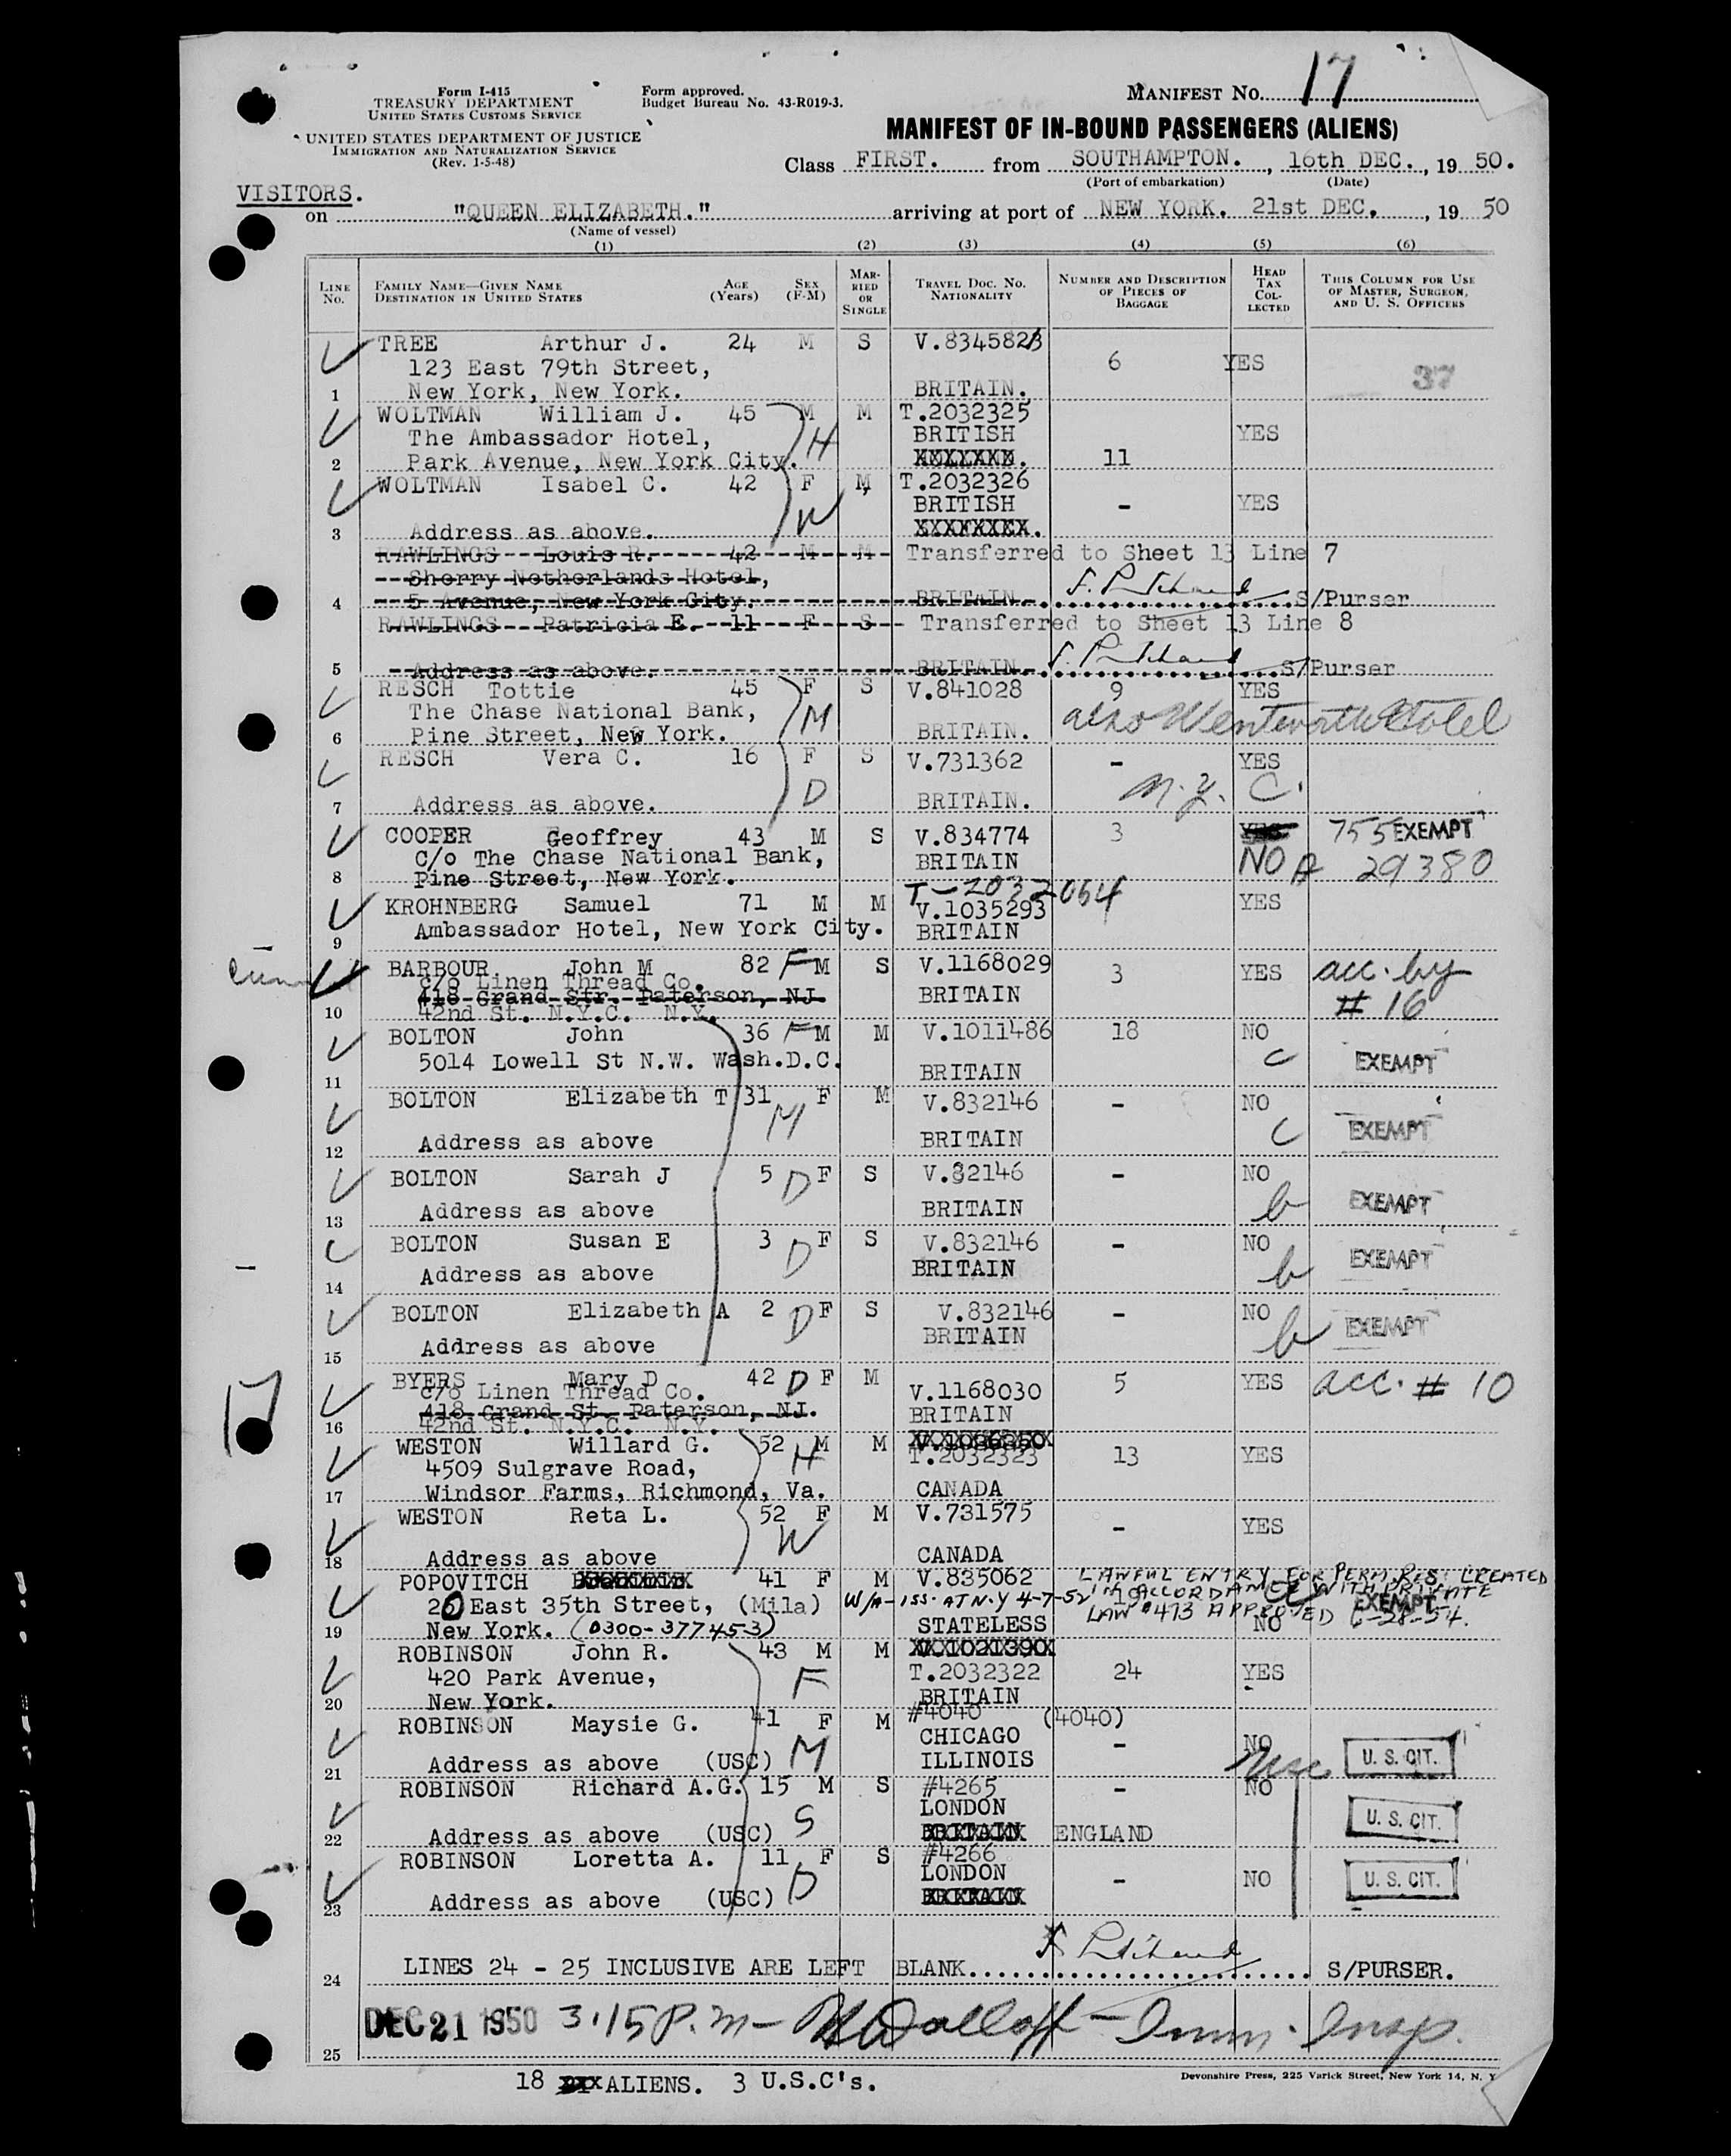 Form I-415
TREASURY DEPARTMENT
UNITED STATES CUSTOMS SERVICE
UNITED STATES DEPARTMENT OF JUSTICE
IMMIGRATION AND NATURALIZATION SERVICE
(Rev. 1-5-48)
Form approved.
Budget Bureau No. 43-R019-3.
MANIFEST NO. 17
MANIFEST OF IN-BOUND PASSENGERS (ALIENS)
Class FIRST. from SOUTHAMPTON., 16th DEC., 1950.
(Port of embarkation) (Date)
VISITORS.
on "QUEEN ELIZABETH." arriving at port of NEW YORK. 21st DEC., 1950
(Name of vessel)
(1) (2) (3) (4) (5) (6)
LINE NO.
FAMILY NAME—GIVEN NAME
DESTINATION IN UNITED STATES
AGE (Years)
SEX (F-M)
MARRIED OR SINGLE
TRAVEL DOC. NO. NATIONALITY
NUMBER AND DESCRIPTION OF PIECES OF BAGGAGE
HEAD TAX COLLECTED
THIS COLUMN FOR USE OF MASTER, SURGEON, AND U. S. OFFICERS
TREE Arthur J. 24 M S V.834582
123 East 79th Street, 6 YES 37
1 New York, New York. BRITAIN.
WOLTMAN William J. 45 M M T.2032325
The Ambassador Hotel, H BRITISH YES
2 Park Avenue, New York City. 11
WOLTMAN Isabel C. 42 F M T.2032326
W BRITISH - YES
3 Address as above.
RAWLINGS Louis R. 42 M M Transferred to Sheet 13 Line 7
Sherry Netherlands Hotel,
4 5 Avenue, New York City. BRITAIN S/Purser
RAWLINGS Patricia E. 11 F S Transferred to Sheet 13 Line 8
5 Address as above. BRITAIN S/Purser
RESCH Tottie 45 F S V.841028 9 YES
The Chase National Bank, M also Wentworth Hotel
6 Pine Street, New York. BRITAIN.
RESCH Vera C. 16 F S V.731362 - YES
D N.Y. C.
7 Address as above. BRITAIN.
COOPER Geoffrey 43 M S V.834774 3 YES 755 EXEMPT
C/o The Chase National Bank, BRITAIN NO A 29380
8 Pine Street, New York.
T-2032064
KROHNBERG Samuel 71 M M V.1035293 YES
Ambassador Hotel, New York City. BRITAIN
9
BARBOUR John M 82 F M S V.1168029 3 YES acc. by
c/o Linen Thread Co. # 16
418 Grand Str. Paterson, NJ BRITAIN
10 42nd St. N.Y.C. N.Y.
BOLTON John 36 F M M V.1011486 18 NO
5014 Lowell St N.W. Wash.D.C. C EXEMPT
11 BRITAIN
BOLTON Elizabeth T 31 F M V.832146 - NO
M C EXEMPT
12 Address as above BRITAIN
BOLTON Sarah J 5 D F S V.82146 - NO
b EXEMPT
13 Address as above BRITAIN
BOLTON Susan E 3 D F S V.832146 - NO
Address as above BRITAIN b EXEMPT
14
BOLTON Elizabeth A 2 D F S V.832146 - NO
BRITAIN b EXEMPT
15 Address as above
BYERS Mary D 42 D F M V.1168030 5 YES acc. # 10
c/o Linen Thread Co.
418 Grand St. Paterson, NJ. BRITAIN
16 42nd St. N.Y.C. N.Y.
WESTON Willard G. 52 M M V.1086350
4509 Sulgrave Road, H T.2032323 13 YES
17 Windsor Farms, Richmond, Va. CANADA
WESTON Reta L. 52 F M V.731575
W - YES
18 Address as above CANADA
POPOVITCH 41 F M V.835062 LAWFUL ENTRY FOR PERM. RES. CREATED
20 East 35th Street, (Mila) W/A-ISS. AT N.Y 4-7-52 IN ACCORDANCE WITH PRIVATE
EXEMPT
LAW #473 APPROVED 6-28-54.
19 New York. (0300-377453) STATELESS NO
ROBINSON John R. 43 M M V.1021390
420 Park Avenue, F T.2032322 24 YES
20 New York. BRITAIN
ROBINSON Maysie G. 41 F M #4040 (4040)
CHICAGO - NO
21 Address as above (USC) M ILLINOIS U. S. CIT.
ROBINSON Richard A.G. 15 M S #4265 - NO
S LONDON U. S. CIT.
22 Address as above (USC) BRITAIN ENGLAND
ROBINSON Loretta A. 11 F S #4266
D LONDON - NO U. S. CIT.
23 Address as above (USC) BRITAIN
24 LINES 24 - 25 INCLUSIVE ARE LEFT BLANK. S/PURSER.
DEC 21 1950 3.15 P.m - Imm. Insp.
25
18 ALIENS. 3 U.S.C's.
Devonshire Press, 225 Varick Street, New York 14, N. Y.